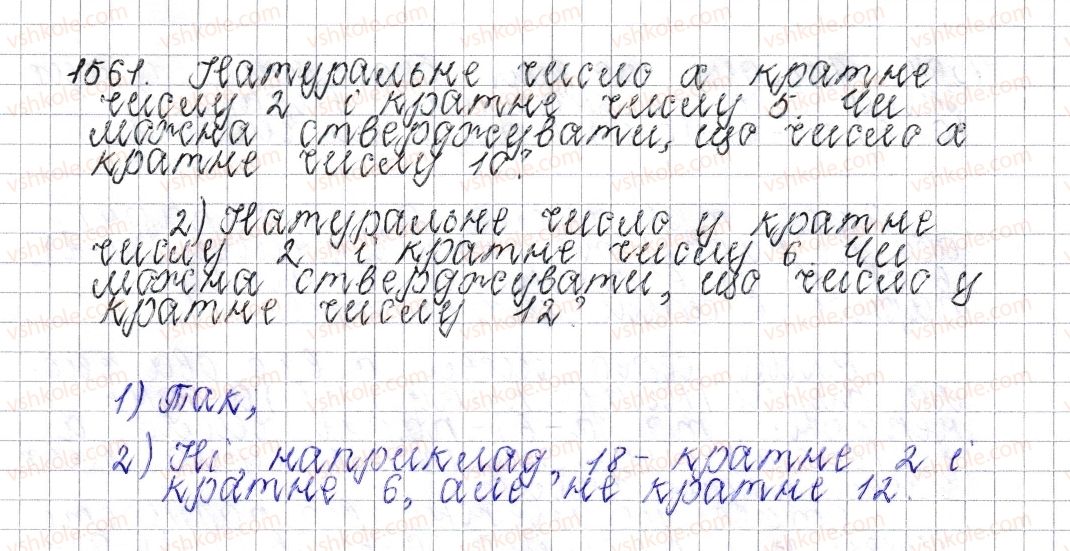 1561. Натуральне число x кратне
числу 2 і кратне числу 5. Чи
можна стверджувати, що число x
кратне числу 10?
2) Натуральне число y кратне
числу 2 і кратне числу 6. Чи
можна стверджувати, що число y
кратне числу 12?
1) Так;
2) Ні, наприклад, 18 - кратне 2 і
кратне 6, але не кратне 12.